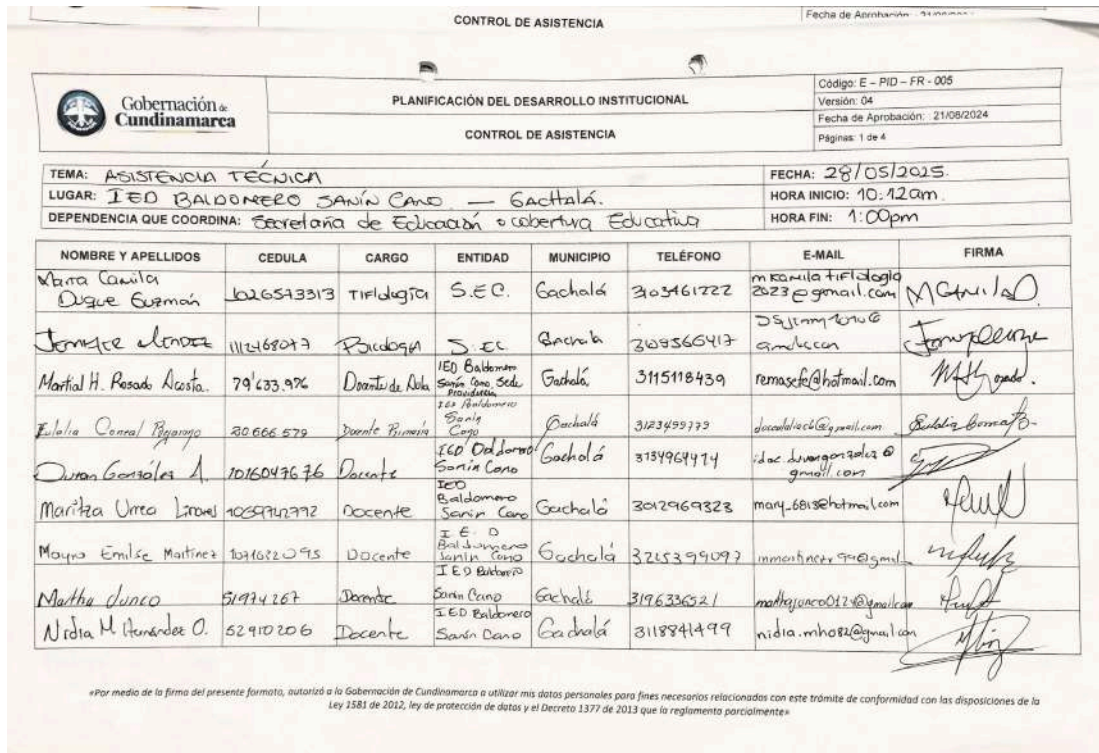 CONTROL DE ASISTENCIA
Fecha de Aprobación:
Gobernación de
Cundinamarca
PLANIFICACIÓN DEL DESARROLLO INSTITUCIONAL
CONTROL DE ASISTENCIA
Código: E – PID – FR - 005
Versión: 04
Fecha de Aprobación: 21/08/2024
Páginas: 1 de 4
TEMA: ASISTENCIA TÉCNICA
FECHA: 28/05/2025.
LUGAR: IED BALDOMERO SANÍN CANO — GACHALÁ.
HORA INICIO: 10:12am
DEPENDENCIA QUE COORDINA: Secretaría de Educación o cobertura Educativa
HORA FIN: 1:00pm
NOMBRE Y APELLIDOS CEDULA CARGO ENTIDAD MUNICIPIO TELÉFONO E-MAIL FIRMA
Camila
Duque Guzmán 1026573313 Tiflología S.E.C. Gachalá 3103461222
2023@gmail.com
1112468047 S.EC. Gachala
Martial H. Rosado Acosta. 79'633.976 Docente de Aula
IED Baldomero
Sanín Cano, Sede
Providencia
Gachalá, 3115118439 remasefe@hotmail.com
Eulalia 20.666.579 Docente Primaria
IED Baldomero
Sanín
Cano
Gachalá 3123499779
Duran González A. 1016047676 Docente
IED Baldomero
Sanín Cano
Gachalá
gmail.com
Maritza Urrea 1069742792 Docente
IED
Baldomero
Sanin Cano
Gachalá 3012969323 mary_6813@hotmail.com
Mayra Emilse Martínez Docente
I.E.D
Baldomero
Sanín Cano
Gachalá 3225399097
Martha Junco 51974267 Docente
IED Baldomero
Sanín Cano
Gachalá 3196336521 marthajunco0124@gmail.com
Nidia M Hernández O. 52910206 Docente
IED Baldomero
Sanín Cano
Gachalá 3118841499 nidia.mho82@gmail.com
«Por medio de la firma del presente formato, autorizó a la Gobernación de Cundinamarca a utilizar mis datos personales para fines necesarios relacionados con este trámite de conformidad con las disposiciones de la
Ley 1581 de 2012, ley de protección de datos y el Decreto 1377 de 2013 que la reglamento parcialmente»